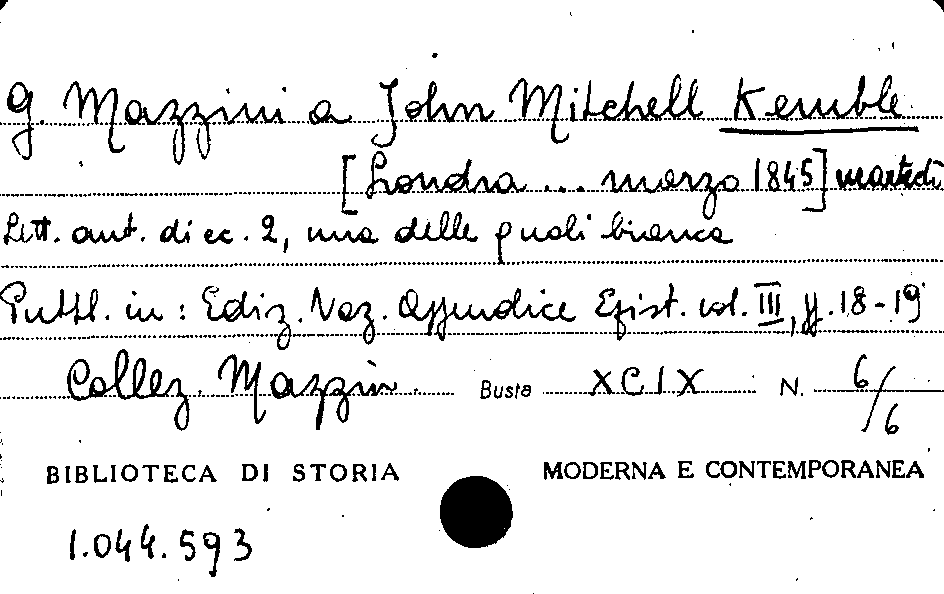 G. Mazzini a John Mitchell Kemble
[Londra ... marzo 1845] martedì
Lett. aut. di cc. 2, una delle quali bianca
Pubbl. in: Ediz. Naz. Appendice Epist. vol. III, pp. 18-19
Collez. Mazzin. Busta XCIX N. 6/6
BIBLIOTECA DI STORIA MODERNA E CONTEMPORANEA
1.044.593